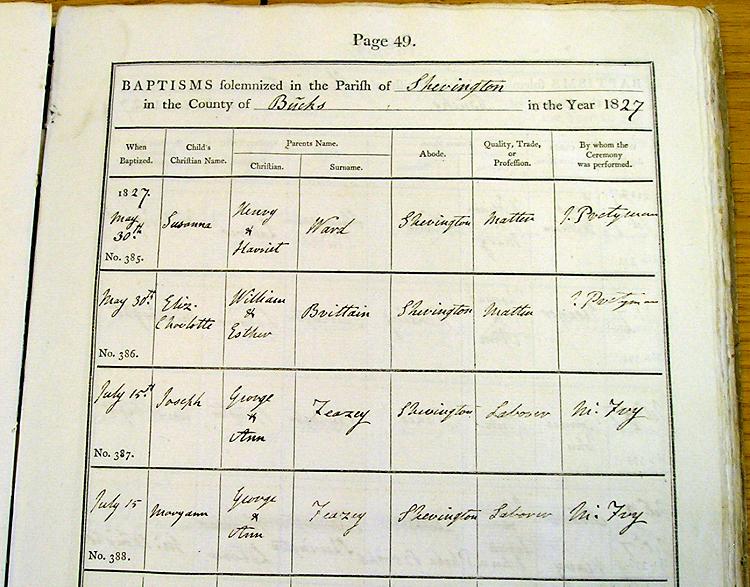 Page 49.
BAPTISMS solemnized in the Parish of Shevington
in the County of Bucks in the Year 1827
When Baptized. Child's Christian Name. Parents Name. Abode. Quality, Trade, or Profession. By whom the Ceremony was performed.
Christian. Surname.
1827.
May 30th Susanna Henry & Harriet Ward Shevington Matter J. Pretyman
No. 385.
May 30th Eliz. Charlotte William & Esther Brittain Shevington Matter J. Pretyman
No. 386.
July 15th Joseph George & Ann Feazey Shevington Laborer M. Fry
No. 387.
July 15 Maryann George & Ann Feazey Shevington Laborer M. Fry
No. 388.